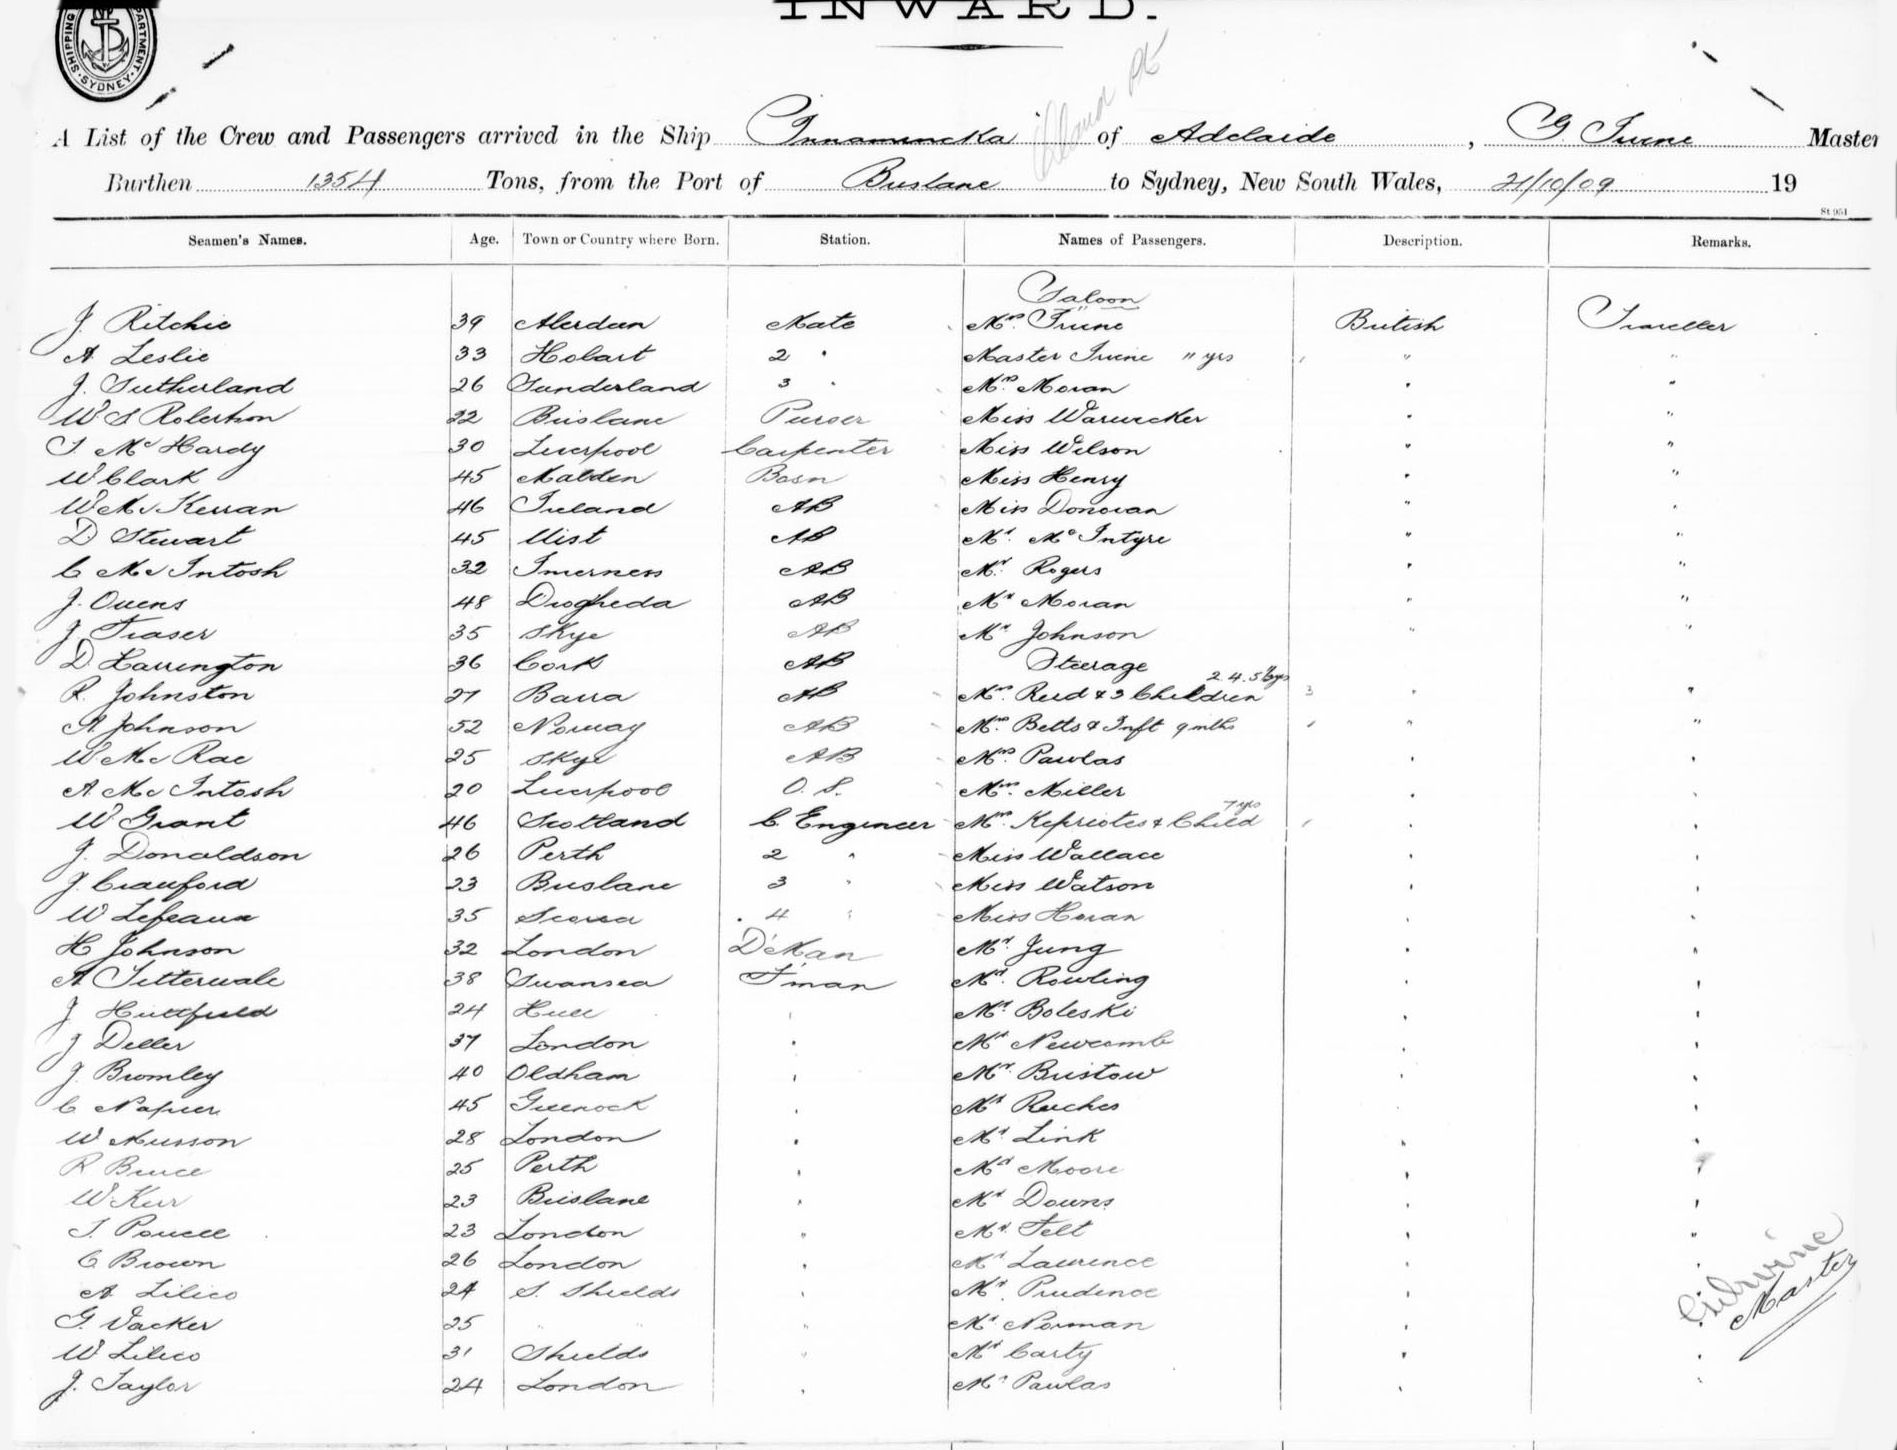 INWARD.
SHIPPING DEPARTMENT. SYDNEY
A List of the Crew and Passengers arrived in the Ship Innamincka of Adelaide, G. Irvine Master
Burthen 1354 Tons, from the Port of Brisbane to Sydney, New South Wales, 21/10/09 19
St 951
Seamen's Names. Age. Town or Country where Born. Station. Names of Passengers. Description. Remarks.
Saloon
J. Ritchie 39 Aberdeen Mate Mrs. Irvine British Traveller
A. Leslie 33 Hobart 2 " Master Irvine 11 yrs " "
J. Sutherland 26 Sunderland 3 " Mrs. Moran " "
W S Robertson 22 Brisbane Purser Miss Warwicker " "
J Mc Hardy 30 Liverpool Carpenter Miss Wilson " "
W Clark 45 Malden Bosn Miss Henry " "
W Mc Kerran 46 Ireland AB Miss Donovan " "
D Stewart 45 Uist AB Mr. Mc Intyre " "
C Mc Intosh 32 Inverness AB Mr. Rogers " "
J. Owens 48 Drogheda AB Mr Moran " "
J Fraser 35 Skye AB Mr Johnson " "
D Harrington 36 Cork AB Steerage
R. Johnston 27 Barra AB Mrs. Reid & 3 Children 2. 4. 5 yrs 3 " "
A Johnson 52 Norway AB Mrs. Betts & Inft 9 mths 1 " "
W Mc Rae 25 Skye AB Mrs. Pawlas " "
A. Mc Intosh 20 Liverpool O. S. Mrs. Miller " "
W Grant 46 Scotland C. Engineer Mrs. Kepriotes & Child 7 yrs 1 " "
J. Donaldson 26 Perth 2 " Miss Wallace " "
J Crawford 23 Brisbane 3 " Miss Watson " "
W Lefeaux 35 4 " Miss Horan " "
H Johnson 32 London D'Man Mr. Jung " "
A Titterwale 38 Swansea F'man Mr. Rowling " "
J 24 Hull " Mr. Boleski " "
J Deller 37 London " Mr Newcomb " "
J. Bromley 40 Oldham " Mr. Bristow " "
C Napier 45 Greenock " Mr Reiches " "
W Musson 28 London " Mr. Link " "
R Bruce 25 Perth " Mr Moore " "
W Kerr 23 Brisbane " Mr Downs " "
J. Powell 23 London " Mr. Felt " "
C Brown 26 London " Mr Laurence " "
A Lilico 24 S. Shields " Mr. Prudence " "
G. Vacker 25 " " " Mr. Norman " "
W Lilico 31 Shields " Mr Carty " "
J. Taylor 24 London " Mr Pawlas " "
G Irvine
Master